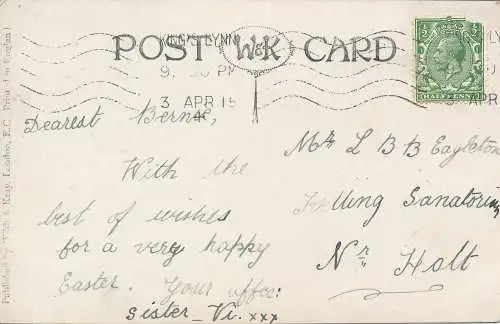 KING'S LYNN
POST W&K CARD
9. 30 PM
3 APR 15
3 APR 15
HALFPENNY
Dearest Bernie,
With the
best of wishes
for a very happy
Easter. Your affec:
Sister - Vi. xxx
Mr L B B Eagleton
Kelling Sanatorium
Nr Holt
Published by Wildt & Kray, London, E.C. Printed in England